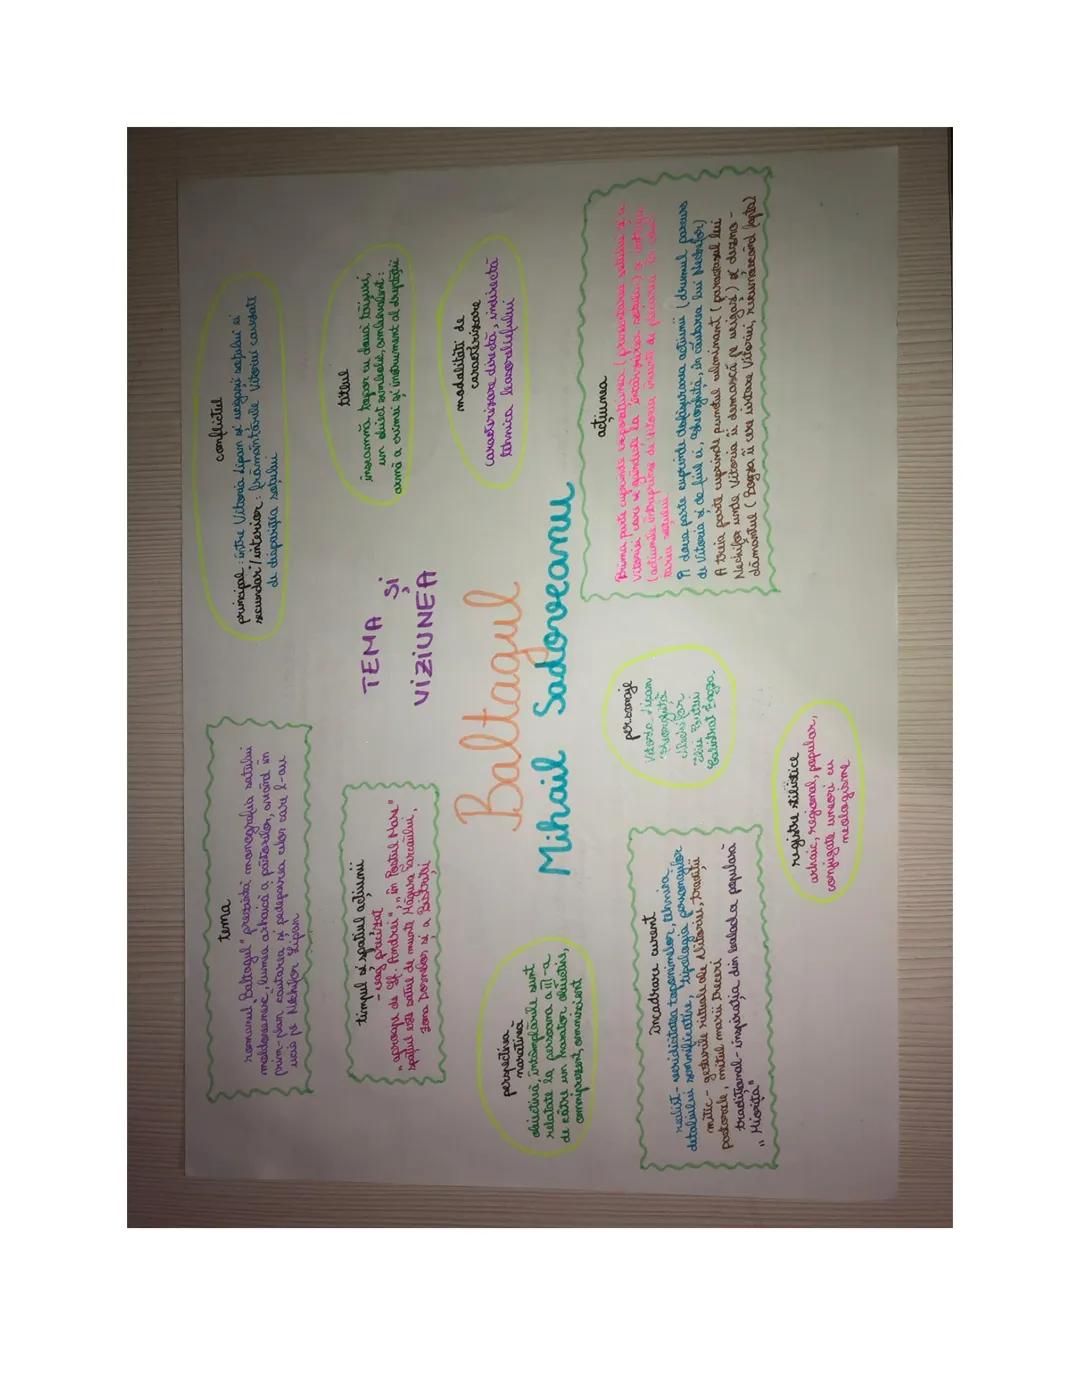 TEMA ȘI
VIZIUNEA
Baltagul
Mihail Sadoveanu
tema
romanul „Baltagul" prezintă monografia satului
moldovenesc, lumea arhaică a păstorilor, având în
prim-plan căutarea și pedepsirea celor care l-au
ucis pe Nechifor Lipan
conflictul
principal: între Vitoria Lipan și ucigașii soțului ei
secundar/interior: frământările Vitoriei cauzate
de dispariția soțului
timpul și spațiul acțiunii
- vag precizat
„aproape de Sf. Andrei", „în Postul Mare"
spațiul este satul de munte Măgura Tarcăului,
zona Dornelor și a Bistriței
titlul
înseamnă topor cu două tăișuri,
un obiect simbolic, ambivalent:
armă a crimei și instrument al dreptății
perspectiva
narativă
obiectivă, întâmplările sunt
relatate la persoana a III-a
de către un narator obiectiv,
omniprezent, omniscient
modalități de
caracterizare
caracterizare directă, indirectă
tehnica basoreliefului
încadrare curent
realist - veridicitatea toponimelor, tehnica
detaliului semnificativ, tipologia personajelor
mitic - gesturile rituale ale Vitoriei, tradiții
pastorale, mitul marii treceri
tradițional - inspirația din balada populară
„Miorița"
personaje
Vitoria Lipan
Gheorghiță
Nechifor
Ilie Cuțui
Calistrat Bogza
acțiunea
Prima parte cuprinde expozițiunea (prezentarea satului și a
Vitoriei care se gândește la întârzierea soțului) și intriga
(acțiunile întreprinse de Vitoria înainte de plecarea în cău-
tarea soțului)
A doua parte cuprinde desfășurarea acțiunii (drumul parcurs
de Vitoria și de fiul ei, Gheorghiță, în căutarea lui Nechifor)
A treia parte cuprinde punctul culminant (parastasul lui
Nechifor unde Vitoria îi demască pe ucigași) și dezno-
dământul (Bogza îi cere iertare Vitoriei, recunoscând fapta)
registre stilistice
arhaic, regional, popular,
conjugate uneori cu
neologisme